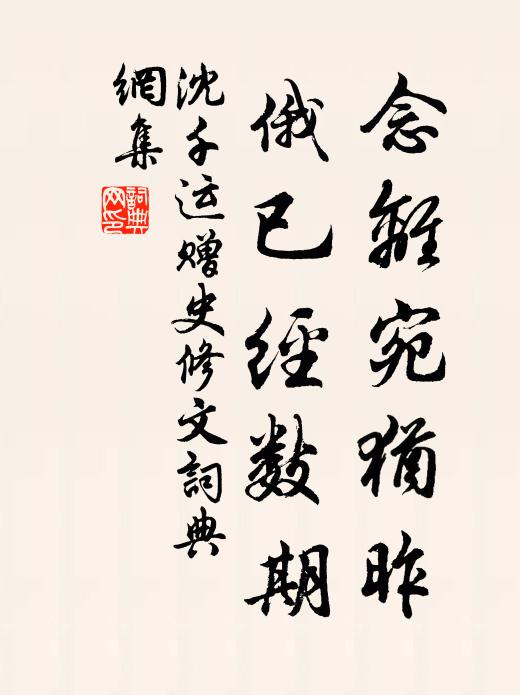 念離宛猶昨
俄已經數期
沈千运赠史修文詞典
網集
詞典
网印